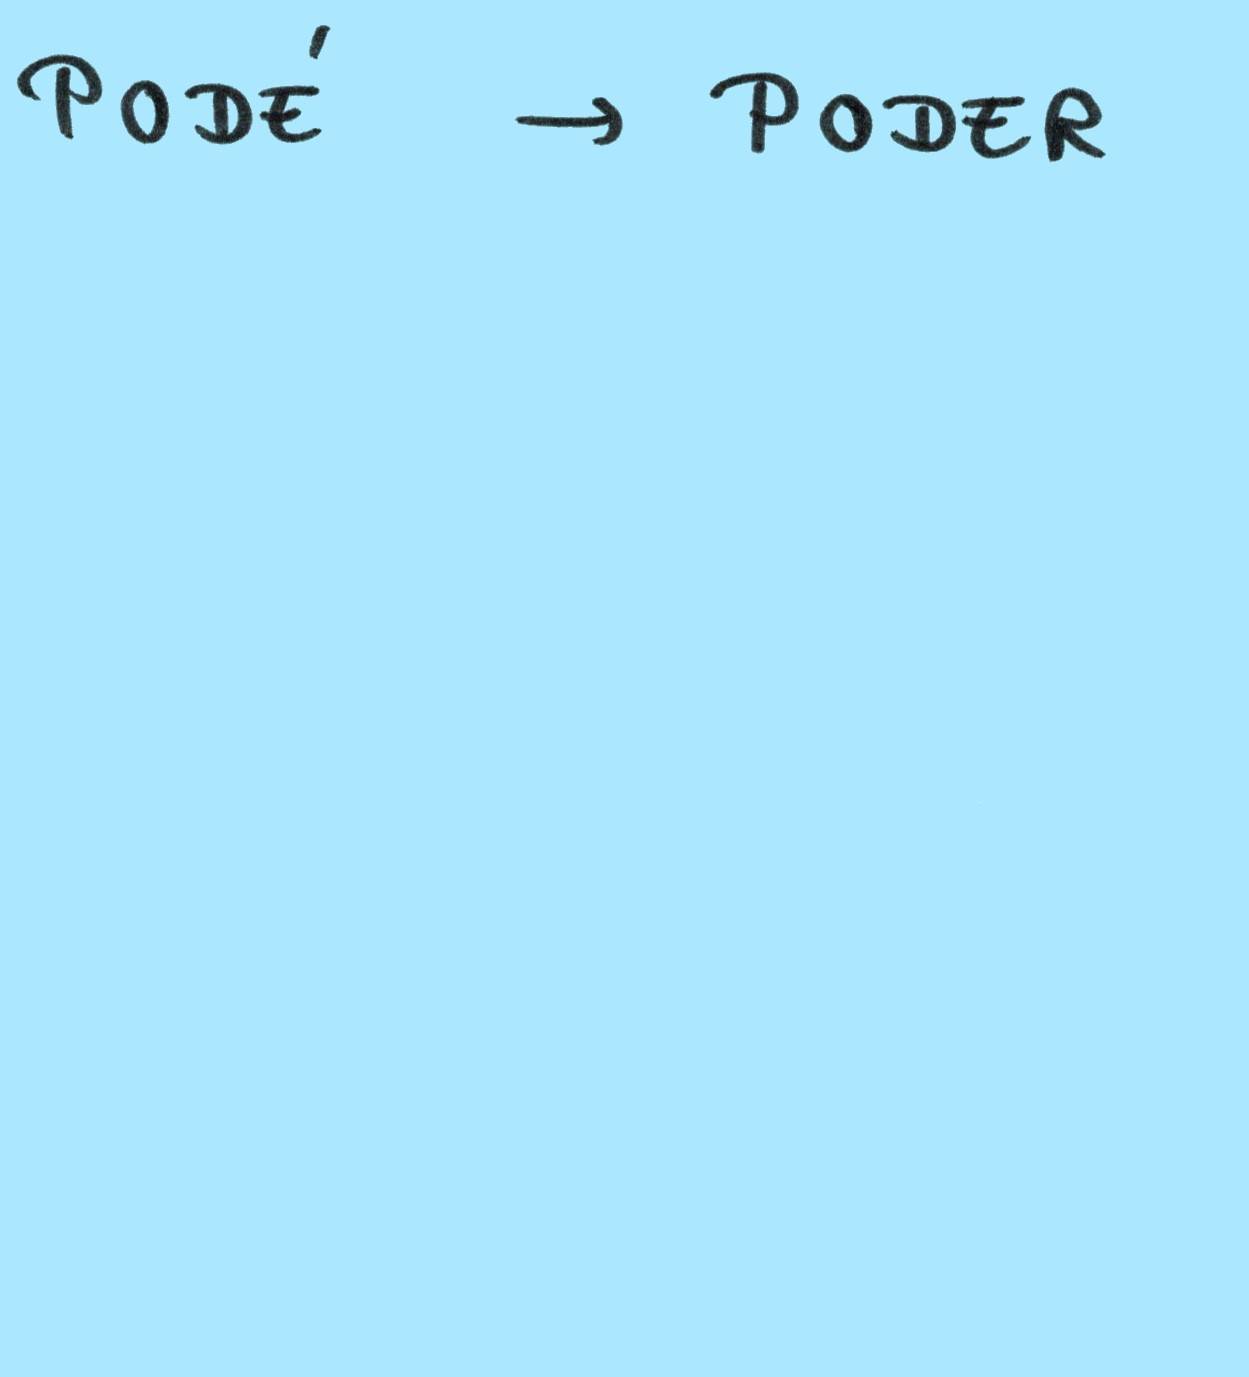 PODÉ → PODER